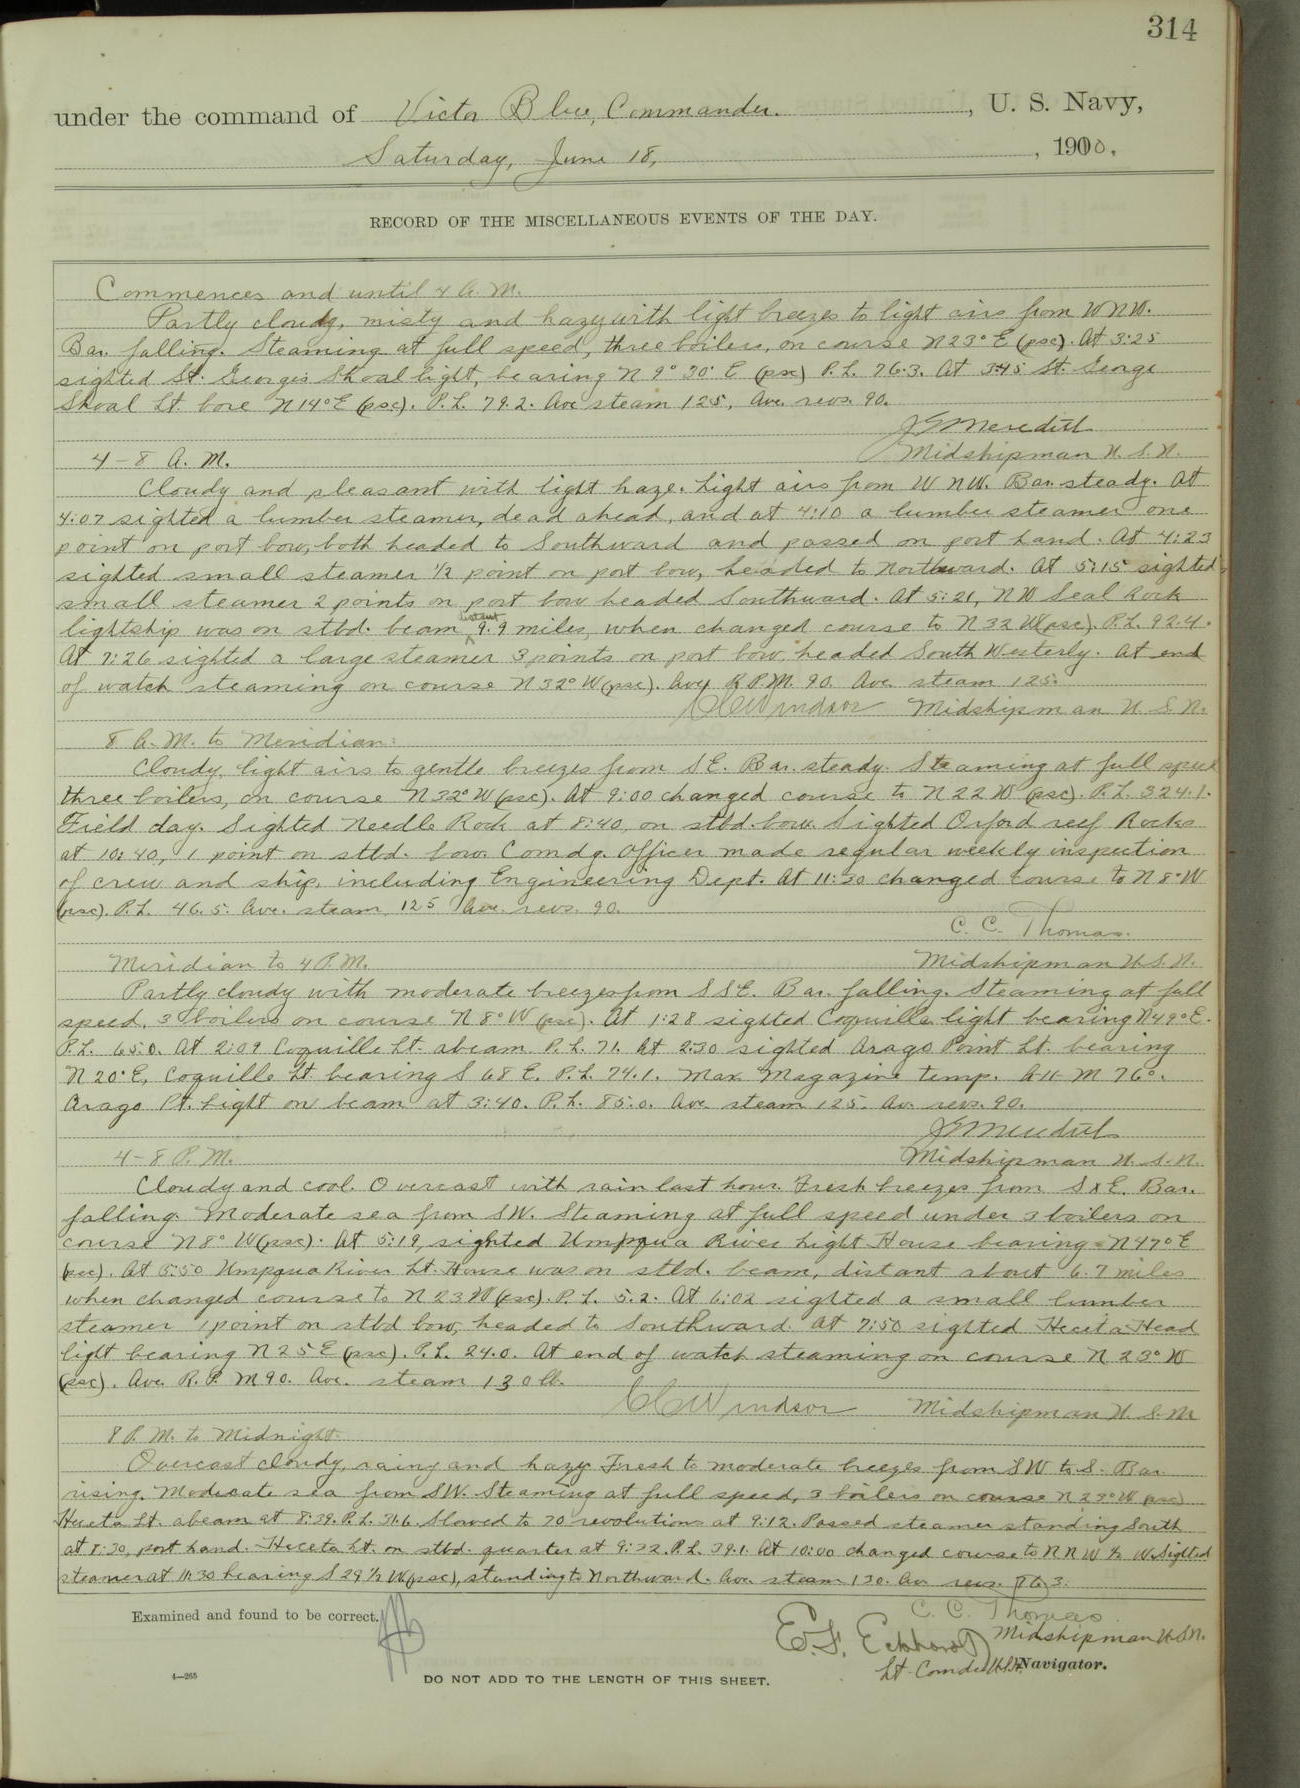 314
under the command of Victor Blue, Commander. , U. S. Navy,
Saturday, June 18, , 1910.
RECORD OF THE MISCELLANEOUS EVENTS OF THE DAY.
Commences and until 4 A. M.
Partly cloudy, misty and hazy with light breezes to light airs from WNW.
Bar. falling. Steaming at full speed, three boilers, on course N 23° E (psc). At 3:25
sighted St. Georges Shoal light, bearing N 9° 30' E (psc) P.L. 76.3. At 3:45 St. George
Shoal Lt. bore N 14° E (psc). P.L. 79.2. Ave steam 125, Ave. revs. 90.
J G Meredith
4 – 8 A. M.
Midshipman U. S. N.
Cloudy and pleasant with light haze. Light airs from W N W. Bar. steady. At
4:07 sighted a lumber steamer, dead ahead, and at 4:10 a lumber steamer one
point on port bow, both headed to Southward and passed on port hand. At 4:23
sighted small steamer 1/2 point on port bow, headed to Northward. At 5:15 sighted
small steamer 2 points on port bow headed Southward. At 5:21, NW Seal Rock
lightship was on stbd. beam distant 9.9 miles, when changed course to N 32 W (psc). P.L. 92.4.
At 7:26 sighted a large steamer 3 points on port bow, headed South Westerly. At end
of watch steaming on course N 32° W (psc). Ave. R.P.M. 90. Ave. steam 125.
Windsor Midshipman U. S. N.
8 A. M. to Meridian:
Cloudy, light airs to gentle breezes from S E. Bar. steady. Steaming at full speed
three boilers, on course N 32° W (psc). At 9:00 changed course to N 22 W (psc). P.L. 324.1.
Field day. Sighted Needle Rock at 8:40, on stbd. bow. Sighted Orford reef Rocks
at 10:40, 1 point on stbd. bow. Comdg. Officer made regular weekly inspection
of crew and ship, including Engineering Dept. At 11:30 changed course to N 8° W
(psc). P.L. 46.5. Ave. steam 125 Ave. revs. 90.
C. C. Thomas.
Meridian to 4 P.M.
Midshipman U.S.N.
Partly cloudy with moderate breezes from S S E. Bar. falling. Steaming at full
speed, 3 boilers on course N 8° W (psc). At 1:28 sighted Coquille light bearing N 49° E.
P.L. 65.0. At 2:09 Coquille Lt. abeam P.L. 71. At 2:30 sighted Arago Point Lt. bearing
N 20° E, Coquille Lt. bearing S 68 E. P.L. 74.1. Max Magazine temp. A-11-M 76°.
Arago Pt. Light on beam at 3:40. P.L. 85.0. Ave. steam 125. Av. revs. 90.
J G Meredith
4 – 8 P. M.
Midshipman U. S. N.
Cloudy and cool. Overcast with rain last hour. Fresh breezes from S x E. Bar.
falling. Moderate sea from S W. Steaming at full speed under 3 boilers on
course N 8° W (psc). At 5:19, sighted Umpqua River Light House bearing N 47° E
(psc). At 5:50 Umpqua River Lt. House was on stbd. beam, distant about 6.7 miles
when changed course to N 23 W (psc). P.L. 5.2. At 6:02 sighted a small lumber
steamer 1 point on stbd bow, headed to Southward. At 7:50 sighted Heceta Head
light bearing N 25 E (psc). P.L. 24.0. At end of watch steaming on course N 23° W
(psc). Ave. R. P. M 90. Ave. steam 130 lb.
Windsor Midshipman U. S. N.
8 P. M. to Midnight.
Overcast cloudy, rainy and hazy. Fresh to moderate breezes from S W to S. Bar.
rising. Moderate sea from S W. Steaming at full speed, 3 boilers on course N 23° W (psc)
Heceta Lt. abeam at 8:39. P.L. 31.6. Slowed to 70 revolutions at 9:12. Passed steamer standing South
at 8:30, port hand. Heceta Lt. on stbd. quarter at 9:32. P.L. 39.1. At 10:00 changed course to N N W 1/2 W. Sighted
steamer at 11:30 bearing S 29 1/2 W (psc), standing to Northward. Ave. steam 130. Av revs. 76.3.
C. C. Thomas.
Examined and found to be correct.
Midshipman U.S.N.
Lt. Comdr U.S.N. Navigator.
4—265
DO NOT ADD TO THE LENGTH OF THIS SHEET.